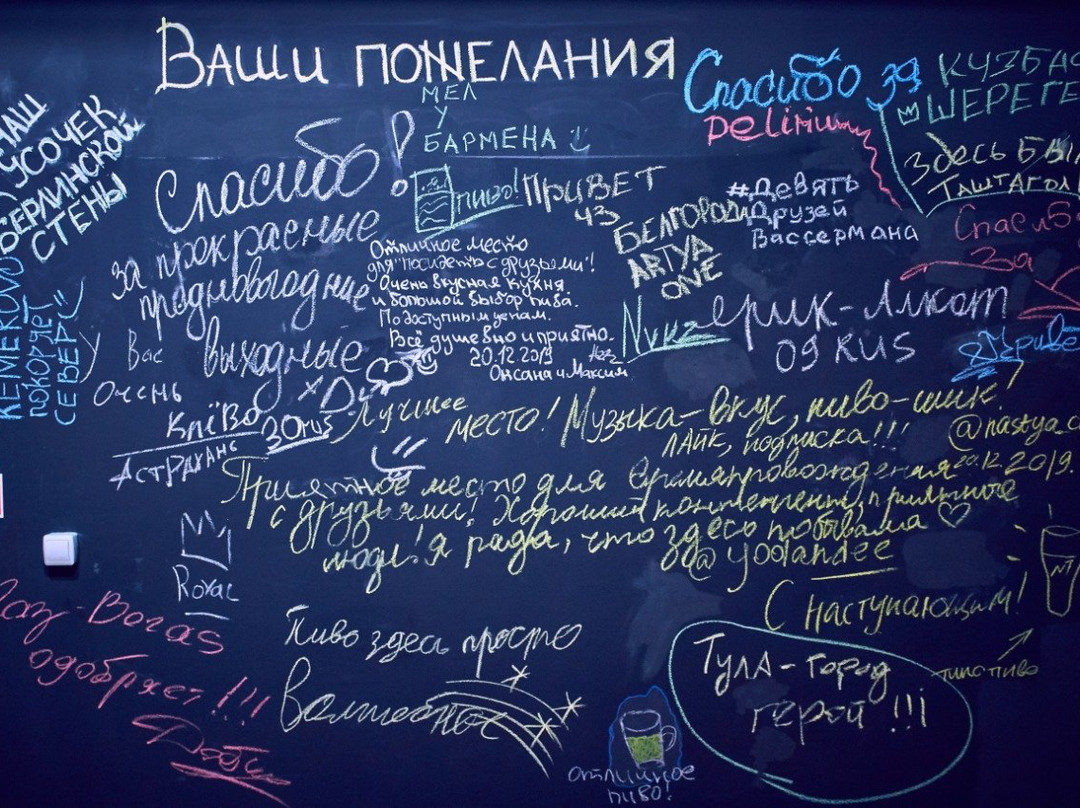 Ваши пожелания
МЕЛ
У
БАРМЕНА
НАШ
КУСОЧЕК
БЕРЛИНСКОЙ
СТЕНЫ
KEMEROVO
ПОКОРЯЕТ
СЕВЕР
Спасибо!
за прекрасные
предновогодние
выходные
У Вас
Очень
Клёво
30rus
Астрахань
пиво!
Отличное место
для "посидеть с друзьями"!
Очень вкусная кухня.
и большой выбор пива.
По доступным ценам.
Всё душевно и приятно.
20.12.2019
Оксана и Максим
Привет
из
Белгорода
ARTYA
ONE
#Девять
Друзей
Вассермана
Спасибо за
Delirium
КУЗБАС
ШЕРЕГЕ
Здесь был
Таштагол
Спасибо
за
Приве
ерик-Алкот
09 RUS
Лучшее
место! Музыка-вкус, пиво-шик!
ЛАЙК, подписка!!!
@nastya_
Приятное место для времяпровождения 20.12.2019.
с друзьями! Хороший контингент, приятные
люди! я рада, что здесь побывала
@yoolandee
Royal
Пиво здесь просто
Волшебное
С наступающим!
типа пиво
Тула-город
герой!!!
отличное
пиво!
Voras
одобряет!!!